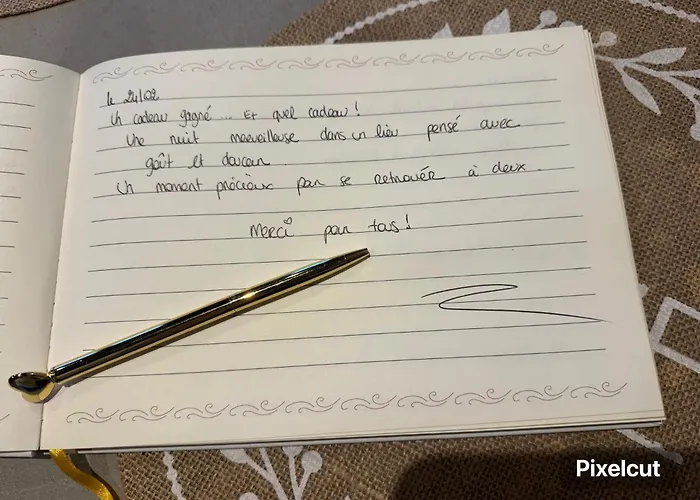 le 24/02
Un cadeau gagné ... Et quel cadeau !
Une nuit merveilleuse dans un lieu pensé avec
goût et douceur.
Un moment précieux pour se retrouver à deux.
Merci pour tous !
Pixelcut